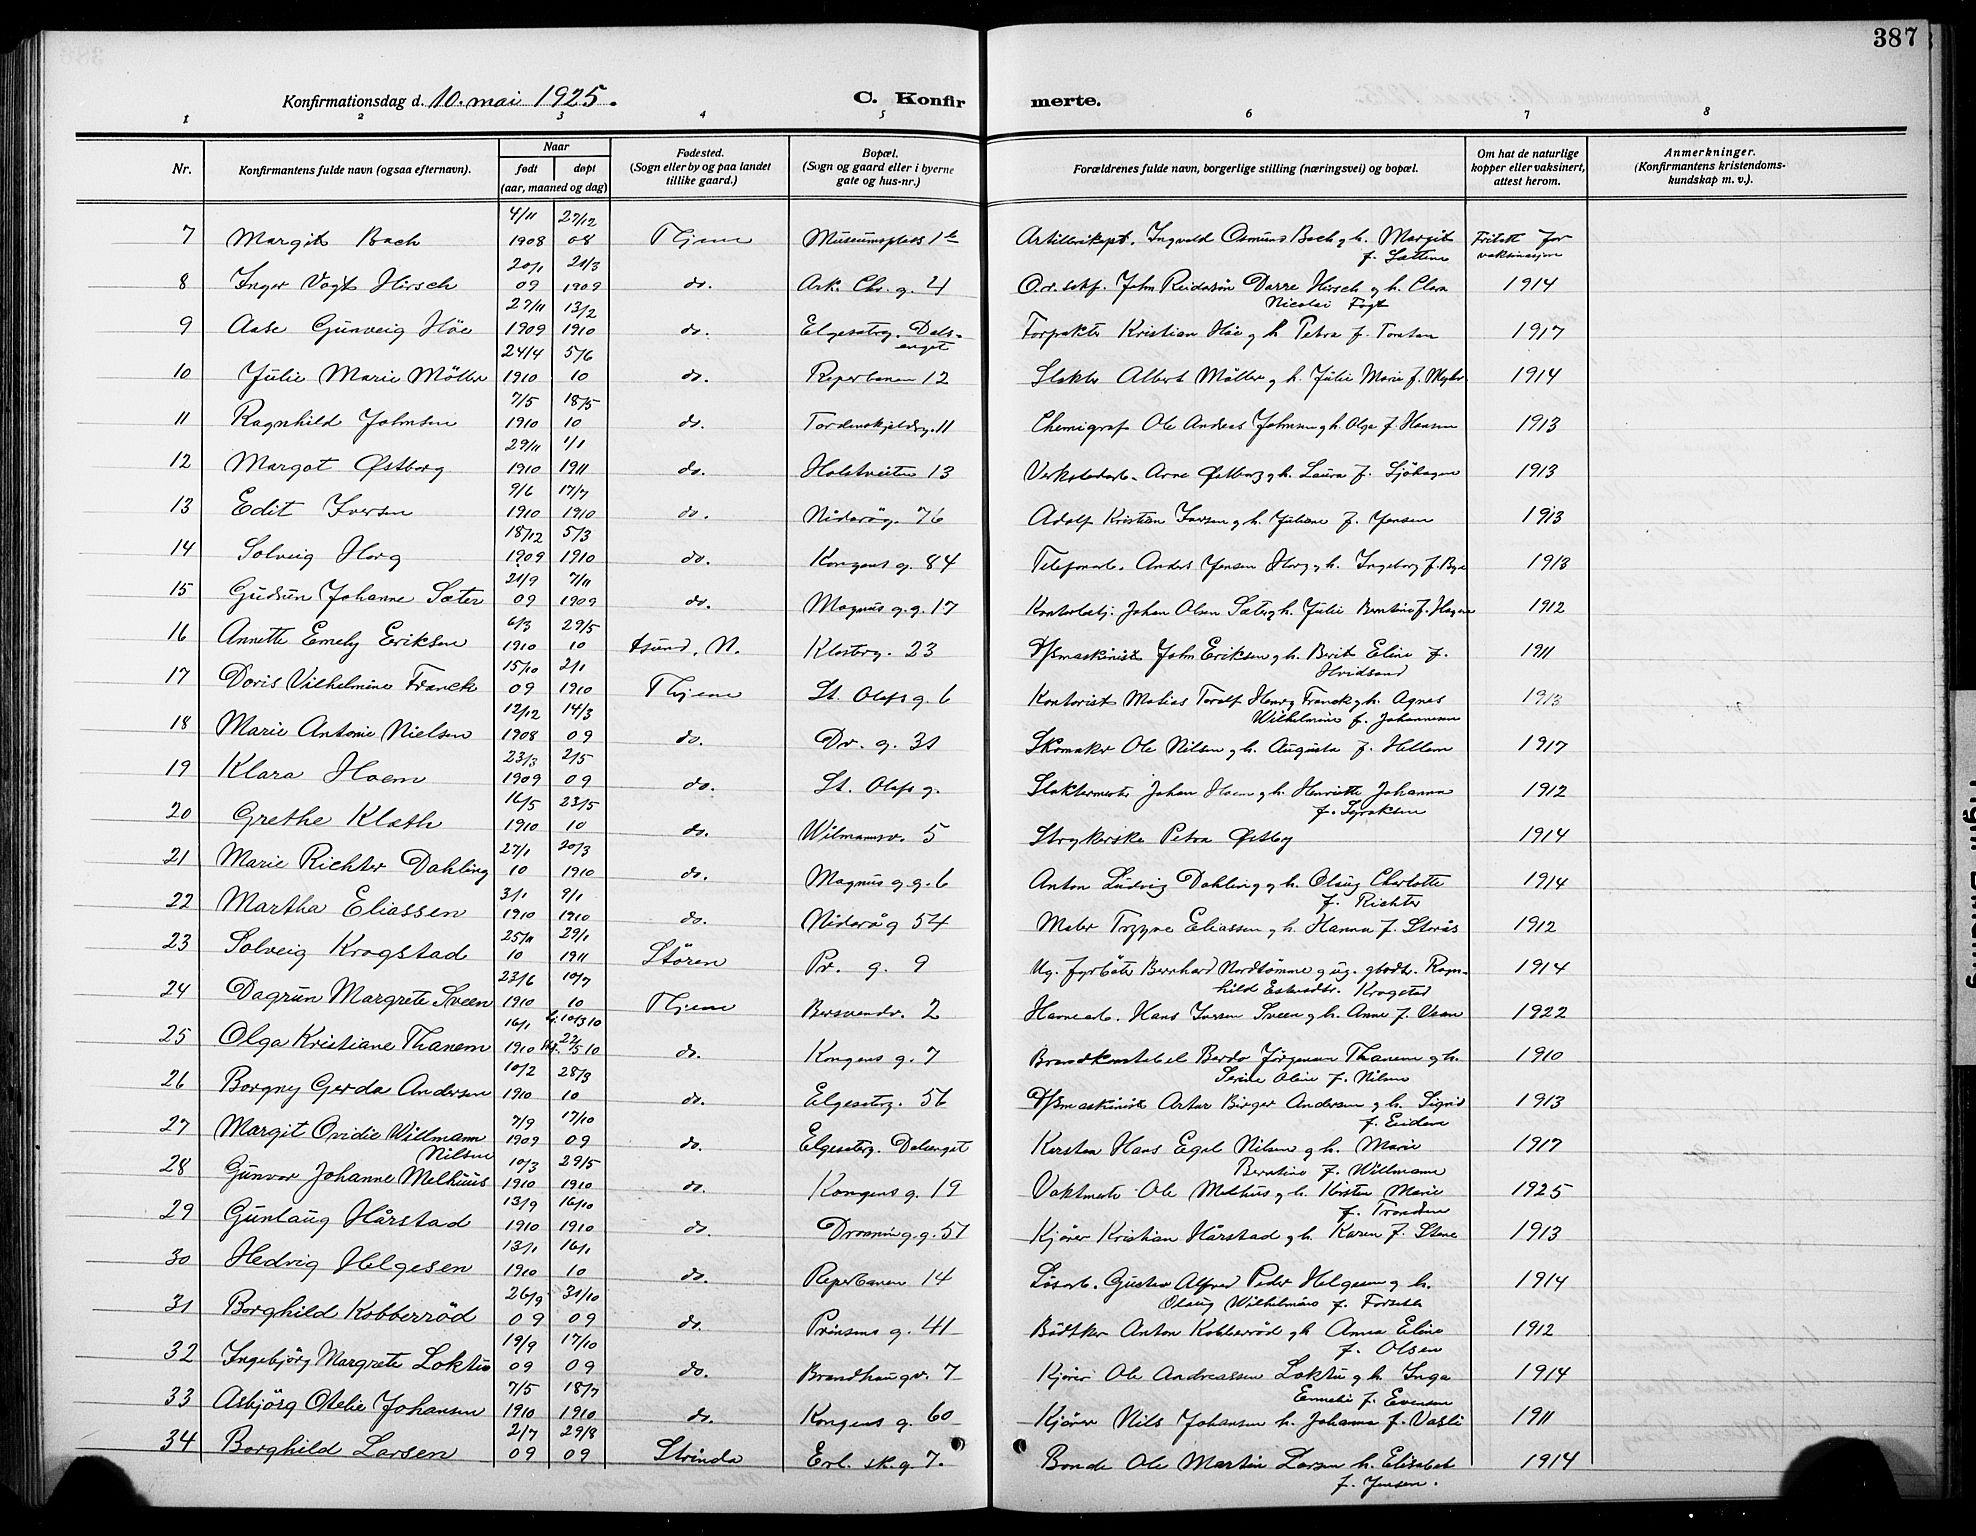 387
Konfirmationsdag d. 10. mai 1925.
C. Konfir
merte.
1 2 3 4 5 6 7 8
Nr.
Konfirmantens fulde navn (ogsaa efternavn).
Naar
født
døpt
(aar, maaned og dag)
Fødested.
(Sogn eller by og paa landet
tillike gaard.)
Bopæl.
(Sogn og gaard eller i byerne
gate og hus-nr.)
Forældrenes fulde navn, borgerlige stilling (næringsvei) og bopæl.
Om hat de naturlige
kopper eller vaksinert,
attest herom.
Anmerkninger.
(Konfirmantens kristendoms-
kundskap m. v.).
4/11 27/12
7 Margit Bach 1908 08 Thjem Museumsplads 1b Artillerikapt. Ingvald Osmund Bach g h. Margit Fritatt for
f. Sættem vaksinasjon
20/1 21/3
8 Inger Vogt Hirsch 09 1909 do. Ark. Chr. g. 4 O.r. sakf. John Reidarsön Darre Hirsch g h. Clara 1914
Nicolai Fogt
27/11 13/2
9 Aase Gunveig Höe 1909 1910 do. Elgesetrg. Dals- Forpakter Kristian Höe g h Petra f. 1917
enget
24/4 5/6
10 Julie Marie Möller 1910 10 do. Reperbanen 12 Slakter Albert Möller g h. Julie Marie f. 1914
7/5 18/5
11 Ragnhild Johnsen 1910 10 do. Tordenskjoldsg. 11 Chemigraf Ole Andreas Johnsen g h. Olga f. Hansen 1913
29/11 1/1
12 Margot Østborg 1910 1911 do. Holstveiten 13 Verkstedarb. Arne Østborg g h. Laura f. Sjöhagen 1913
9/6 17/7
13 Edit Iversen 1910 1910 do. Nidaròg. 76 Adolf Kristian Iversen g h. Juliane f. Jensen 1913
18/12 5/3
14 Solveig Horg 1909 1910 do. Kongens g. 84 Telefonarb. Anders Jensen Horg g h. Ingeborg f. Bye 1913
21/9 7/11
15 Gudrun Johanne Sæter 09 1909 do. Magnus g. g. 17 Kontorbetj. Johan Olsen Sæter g h. Julie Berntine f. Hagen 1912
6/3 29/5
16 Annette Emely Eriksen 1910 10 Asund, N. Klosterg. 23 D/Smaskinist John Eriksen g h. Berit Eline f. 1911
Hvidsand
15/10 2/1
17 Doris Vilhelmine Franck 09 1910 Thjem St. Olafs g. 6 Kontorist Matias Toralf Henry Franck g h. Agnes 1913
Wilhelmine f. Johannesen
12/12 14/3
18 Marie Antonie Nielsen 1908 09 do. Dr. g. 31 Skomaker Ole Nilsen g h. Augusta f. Hellem 1917
23/3 2/5
19 Klara Hoem 1909 09 do. St. Olafs g. Slaktermester Johan Hoem g h. Henriette Johanna 1912
f. Syraksen
16/5 23/5
20 Grethe Klæth 1910 10 do. Wilmannsv. 5 Strykerske Petra Østby 1914
27/1 20/3
21 Marie Richter Dahling 10 1910 do. Magnus g. g. 6 Anton Ludvig Dahling g h. Olaug Charlotte 1914
f. Richter
3/1 9/1
22 Martha Eliassen 1910 1910 do. Nidaròg 54 Maler Trygve Eliassen g h. Hanna f. Storås 1912
25/11 29/1
23 Solveig Krogstad 10 1911 Stören Pr. g. 9 Ug. fyrböter Bernhard Nordtömme g ug. gbodt. Ragn- 1914
hild Estensdtr. Krogstad
23/6 10/7
24 Dagrun Margrete Sveen 1910 10 Thjem Bersvendv. 2 Havnearb. Hans Iversen Sveen g h. Anne f. Veen 1922
16/1 hj. 10/3 10
25 Olga Kristiane Thanem 1910 22/5 10 do. Kongens g. 7 Brandkonstabel Bardo Jörgensen Thanem g h. 1910
Serine Oline f. Nilsen
10/2 28/3
26 Borgny Gerda Andersen 1910 10 do. Elgesetrg. 56 D/Smaskinist Artur Birger Andersen g h. Sigrid 1913
f. Eidem
7/9 17/10
27 Margit Ovidie Willmann 1909 09 do. Elgesetrg. Dalsenget Kersten Hans Egel Nilsen g h. Marie 1917
Nilsen Berntine f. Willmann
10/3 29/5
28 Gunvor Johanne Melhuus 1910 1910 do. Kongens g. 19 Vaktmester Ole Melhus g h. Kirsten Marie 1925
f. Trondsen
13/9 16/10
29 Gunlaug Hårstad 1910 1910 do. Dronning g. 51 Kjörer Kristian Hårstad g h. Karen f. Stene 1913
13/1 16/1
30 Hedvig Helgesen 1910 10 do. Reperbanen 14 Lösarb. Gustav Alfred Peder Helgesen g h. 1914
Olaug Wilhelmine f. Forseth
26/9 31/10
31 Borghild Kobberröd 09 09 do. Prinsens g. 41 Bödtker Anton Kobberröd g h Anna Eline 1912
f. Olsen
19/9 17/10
32 Ingebjörg Margrete Loktu 09 09 do. Brandhaugv. 7 Kjörer Ole Andreassen Loktu g h. Inga 1914
Ennelie f. Evensen
7/5 18/7
33 Asbjörg Otelie Johansen 1910 1910 do. Kongens g. 60 Kjörer Nils Johansen h. Johanna f. Vasli 1911
2/7 29/8
34 Borghild Larsen 09 09 Strinda Erl. sk. g. 7. Bonde Ole Martin Larsen h. Elisabet 1914
f. Jensen.